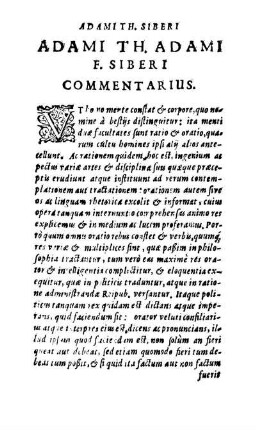 ADAMI TH. SIBERI
ADAMI TH. ADAMI
F. SIBERI
COMMENTARIUS.
VT homo mente constat & corpore, quo nomine à bestijs distinguitur: ita menti
duæ facultates sunt ratio & oratio, quarum cultu homines ipsi alij alios antecellunt. Ac rationem quidem, hoc est, ingenium ac
pectus variæ artes & disciplinæ suis quæque præceptis erudiunt atque instituunt ad verum contemplationem aut tractationem: orationem autem sive
os ac linguam rhetorica excolit & informat, cuius
opera tanquam internuntio comprehensa animo res
explicemus & in medium ac lucem proferamus. Porrò quum omnis oratio rebus constet & verbis, quumq́;
res variæ & multiplices sint, quæ passim in philosophia tractantur, tum verò eas maximè res orator & intelligentia complectitur, & eloquentia exequitur, quæ in politicis traduntur, atque in ratione administrandæ Reipub. versantur. Itaque politicus tanquam rex quidam est dictans atque imperans, quid faciendum sit: orator veluti consiliarius atque interpres eius est, dicens ac pronuncians, illud ipsum quod faciendum est, non solùm an fieri
queat aut debeat, sed etiam quomodo fieri tum debeat tum possit, & si quid ita factum aut non factum
fuerit